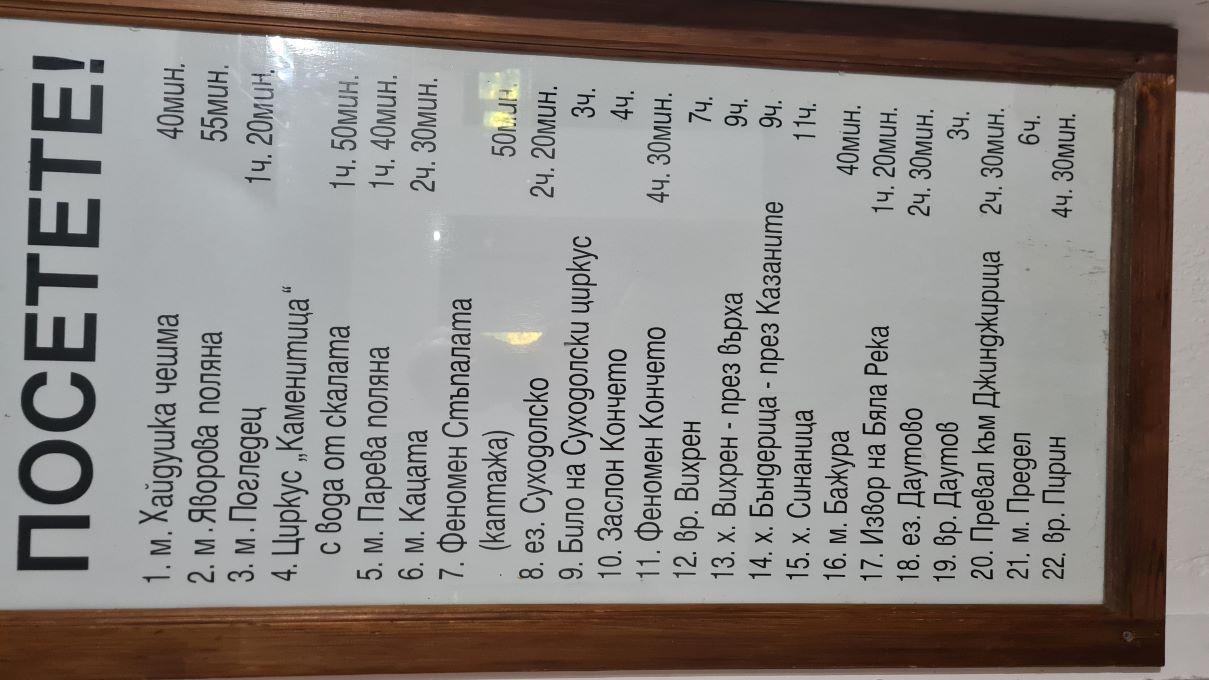 ПОСЕТЕТЕ!
1. м. Хайдушка чешма 40мин.
2. м. Яворова поляна 55мин.
3. м. Погледец 1ч. 20мин.
4. Циркус „Каменитица“
с вода от скалата 1ч. 50мин.
5. м. Парева поляна 1ч. 40мин.
6. м. Кацата 2ч. 30мин.
7. Феномен Стъпалата
(каптажа) 50мин.
8. ез. Суходолско 2ч. 20мин.
9. Било на Суходолски циркус 3ч.
10. Заслон Кончето 4ч.
11. Феномен Кончето 4ч. 30мин.
12. вр. Вихрен 7ч.
13. х. Вихрен - през върха 9ч.
14. х. Бъндерица - през Казаните 9ч.
15. х. Синаница 11ч.
16. м. Бажура 40мин.
17. Извор на Бяла Река 1ч. 20мин.
18. ез. Даутово 2ч. 30мин.
19. вр. Даутов 3ч.
20. Превал към Джинджирица 2ч. 30мин.
21. м. Предел 6ч.
22. вр. Пирин 4ч. 30мин.